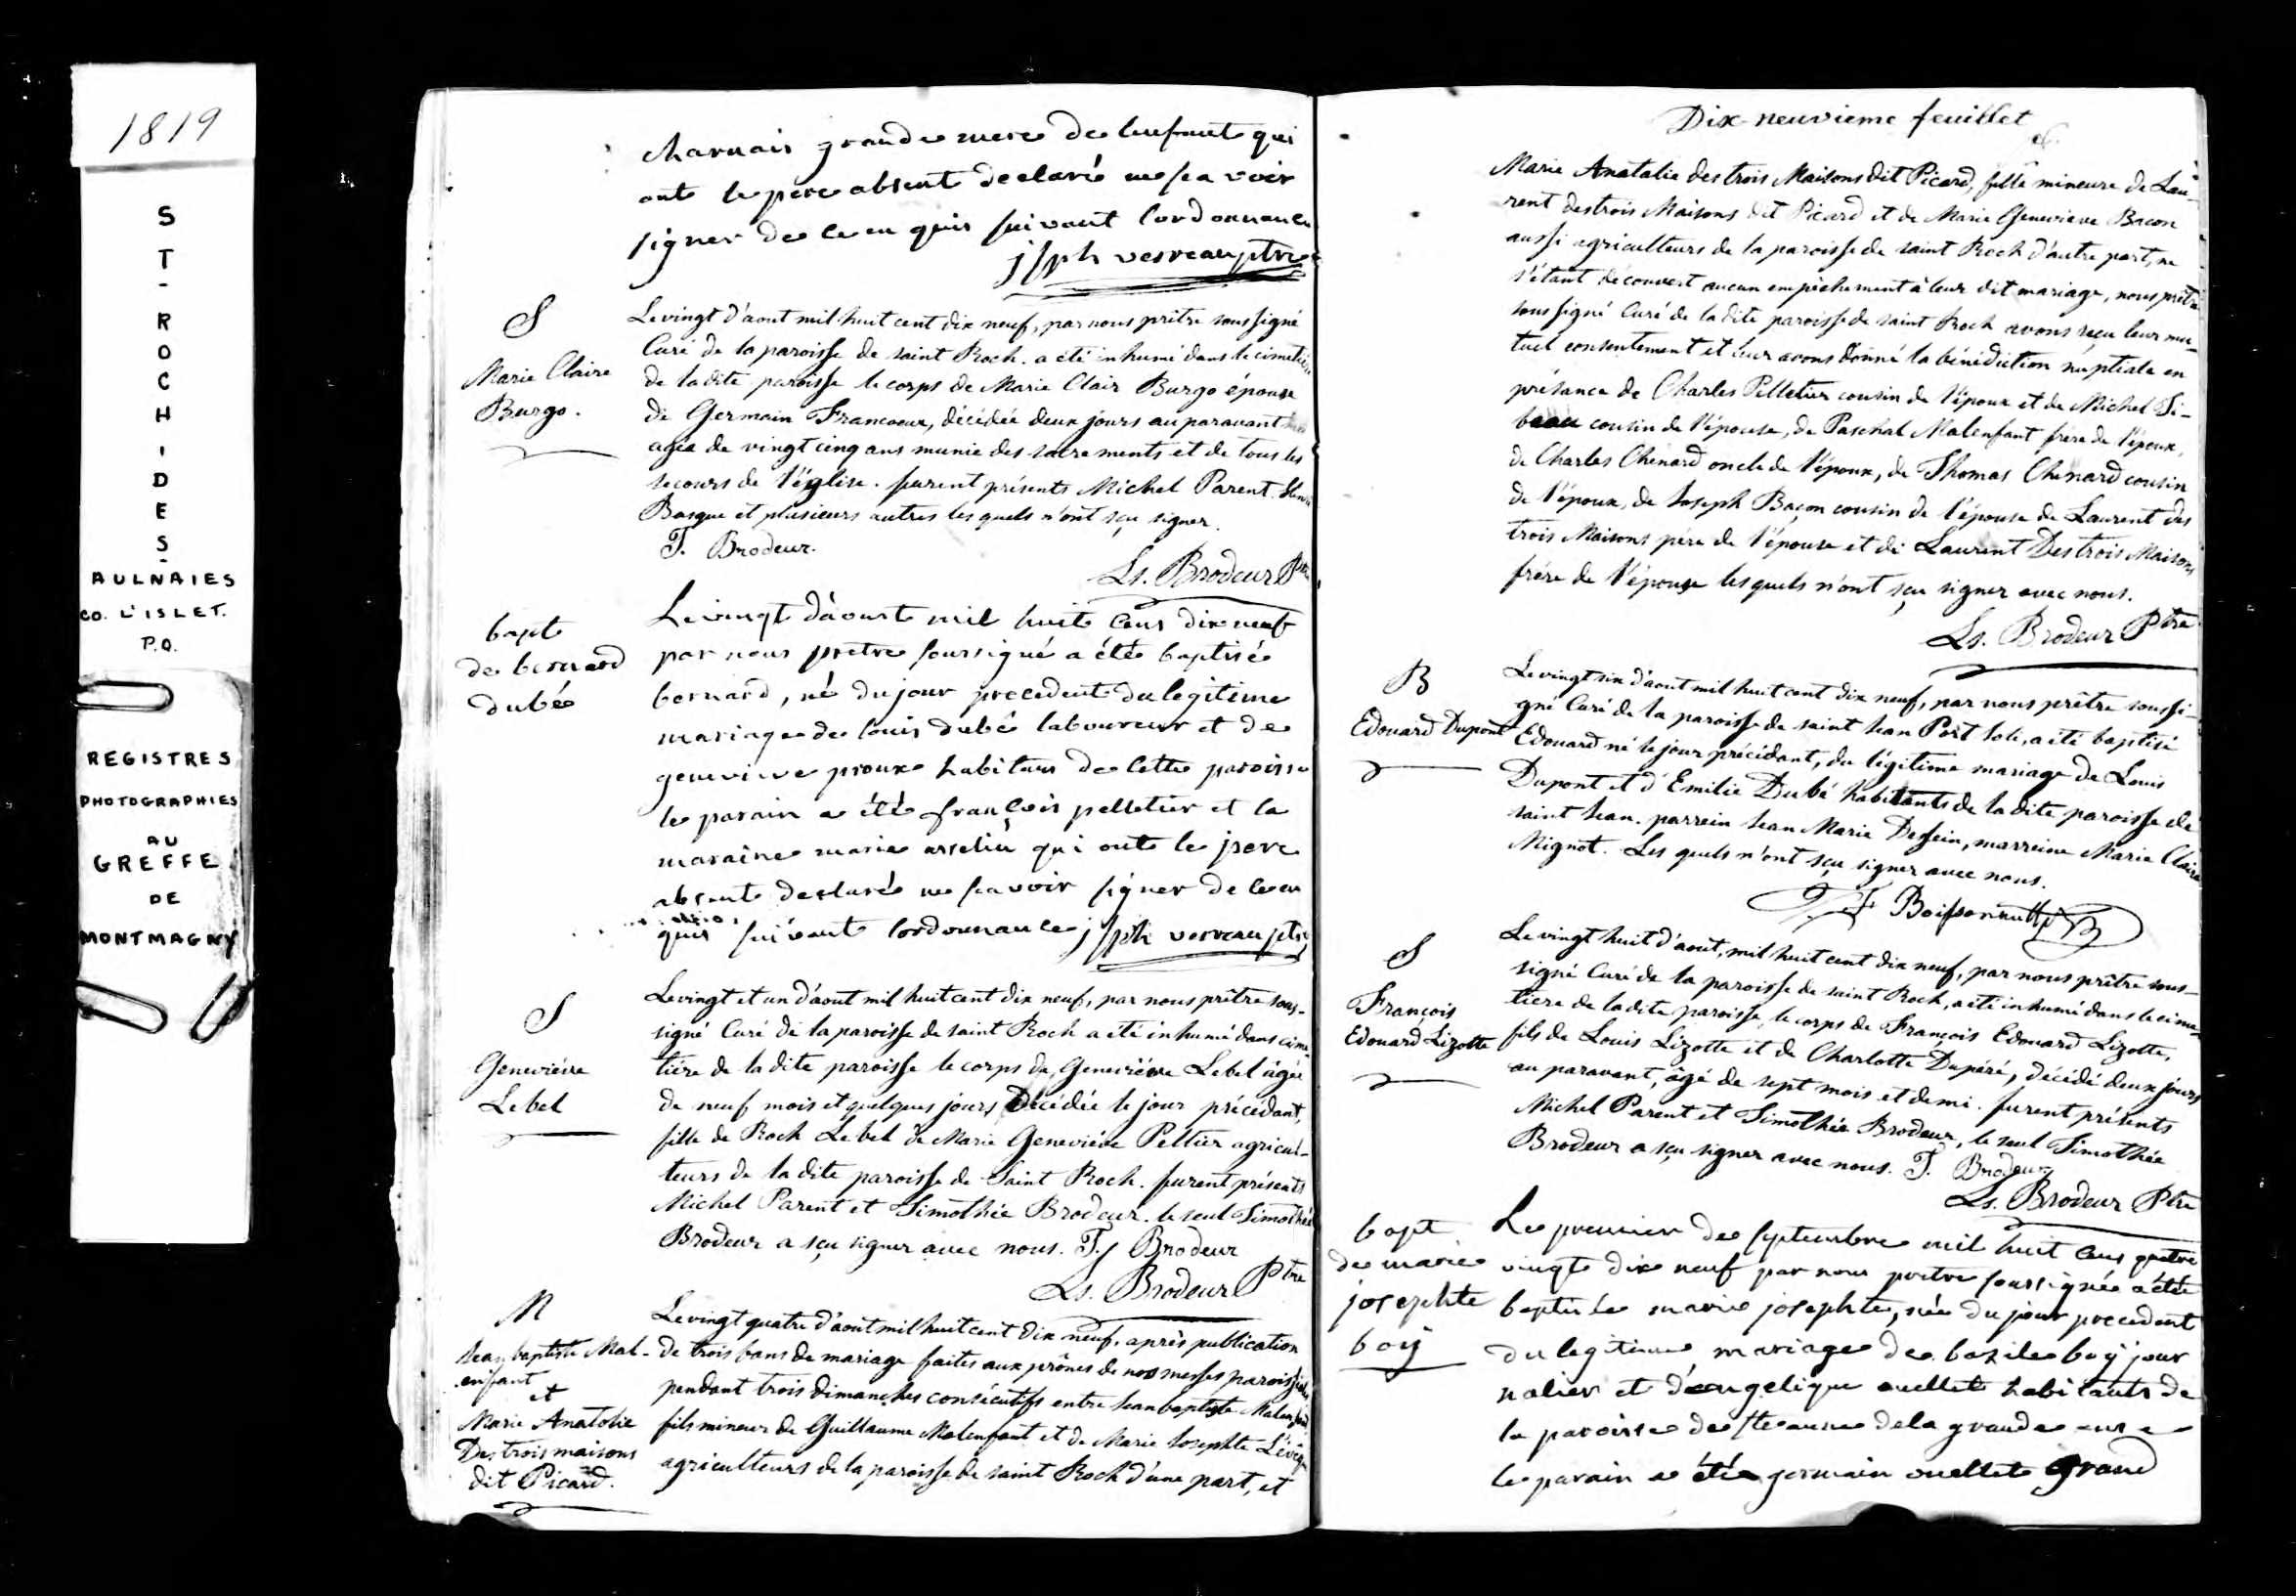 1819
ST-ROCH-DES-
AULNAIES
CO. L'ISLET.
P.Q.
REGISTRES
PHOTOGRAPHIES
AU
GREFFE
DE
MONTMAGNY
charuais grande mere de lenfant qui
ont le pere absent declaré ne sca voir
signer de ce en quis suivant lordonnance
jsph verreau ptre
S
Marie Claire
Burgo.
Le vingt d'aout mil huit cent dix neuf, par nous prêtre soussigné
Curé de la paroisse de saint Roch. a été inhumé dans le cimetière
de la dite paroisse le corps de Marie Clair Burgo épouse
de Germain Francoeur, décédée deux jours auparavant
agée de vingt cinq ans munie des sacrements et de tous les
secours de l'église. furent présents Michel Parent
Basque et plusieurs autres les quels n'ont sçu signer.
T. Brodeur.
Ls. Brodeur Ptre
bapt
de bernard
dubé
Le vingt d'aoust mil huit cens dix neuf
par nous pretre soussigné a été baptisé
bernard, né du jour precedent du legitime
mariage de louis dubé laboureur et de
genevieve proux habitans de cette paroisse
le parain a été françois pelletier et la
maraine marie asselin qui ont le pere
absent declaré ne scavoir signer de ce en
quis suivant lordonnance jsph verreau ptre
S
Geneviéve
Lebel
Le vingt et un d'aout mil huit cent dix neuf, par nous prêtre sous-
signé Curé de la paroisse de saint Roch a été inhumé dans cime-
tière de la dite paroisse le corps de Geneviéve Lebel âgée
de neuf mois et quelques jours Décédée le jour précédant,
fille de Roch Lebel de Marie Geneviéve Peltier agricul-
teurs de la dite paroisse de Saint Roch. furent présents
Michel Parent et Timothée Brodeur. le seul Timothée
Brodeur a sçu signer avec nous. T. Brodeur
Ls. Brodeur Ptre
M
Jean baptiste Mal-
enfant
et
Marie Anatolie
Des trois maisons
dit Picard.
Le vingt quatre d'aout mil huit cent dix neuf, après publication
de trois bans de mariage faites aux prônes de nos messes paroissiales
pendant trois dimanches consécutifs entre Jean baptiste Malenfant,
fils mineur de Guillaume Malenfant et de Marie Josephte Lévêque
agriculteurs de la paroisse de saint Roch d'une part, et
Dix-neuvieme feuillet
Marie Anatalie des trois Maisons dit Picard, fille mineure de Lau-
rent des trois Maisons dit Picard et de Marie Genevieve Bacon
aussi agriculteurs de la paroisse de saint Roch d'autre part, ne
s'étant découvert aucun empêchement à leur dit mariage, nous prêtre
soussigné Curé de la dite paroisse de saint Roch avons reçu leur mu-
tuel consentement et leur avons donné la bénédiction nuptiale en
présance de Charles Pelletier cousin de l'époux et de Michel Ti-
beau cousin de l'épouse, de Paschal Malenfant frère de l'époux,
de Charles Chénard oncle de l'époux, de Thomas Chénard cousin
de l'époux, de Joseph Baçon cousin de l'épouse de Laurent des
trois Maisons père de l'épouse et de Laurent Des trois Maisons
frére de l'épouse les quels n'ont sçu signer avec nous.
Ls. Brodeur Ptre
B
Edouard Dupont
Le vingt six d'aout mil huit cent dix neuf, par nous prêtre soussi-
gné Curé de la paroisse de saint Jean Port Joli, a été baptisé
Edouard né le jour précédant, du légitime mariage de Louis
Dupont et d'Emilie Dubé habitants de la dite paroisse de
saint Jean. parrein Jean Marie Dessein, marreine Marie Claire
Mignot. Les quels n'ont sçu signer avec nous.
F Boissonnault
S
François
Edouard Lizotte
Le vingt huit d'aout, mil huit cent dix neuf, par nous prêtre sous-
signé Curé de la paroisse de saint Roch, a été inhumé dans le cime-
tiere de la dite paroisse, le corps de François Edouard Lizotte,
fils de Louis Lizotte et de Charlotte Dupéré, décédé deux jours
au paravant, âgé de sept mois et demi. furent présents
Michel Parent et Timothée Brodeur, le seul Timothée
Brodeur a sçu signer avec nous. T. Brodeur
Ls. Brodeur Ptre
bapt
de marie
josephte
boÿ
Le premier de septembre mil huit cens quatre
vingt dix neuf par nous pretre soussignée a été
baptisée marie josephte, née du jour precedent
du legitime mariage de bazile boÿ jour
nalier et d'angelique ouellet habitants de
la paroisse de ste anne de la grande ance
le parain a été germain ouellet grand